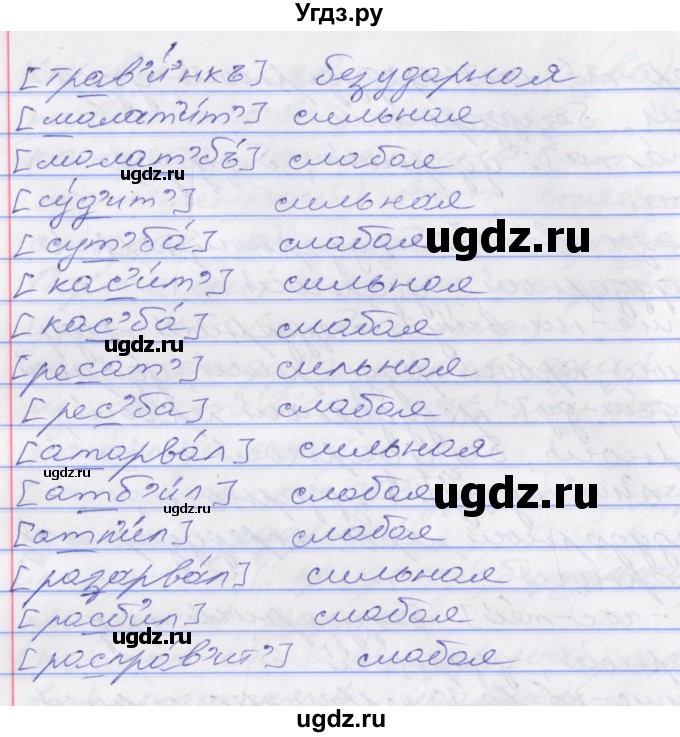 Угдз.ру
[трав'и́нкъ] безударная
[малат'и́т'] сильная
[малат'бъ́] слабая
[су́д'ит'] сильная
[сут'ба́] слабая
[кас'и́т'] сильная
[кас'ба́] слабая
[ресат'] сильная
[рес'ба] слабая
[атарва́л] сильная
[атб'и́л] слабая
[атпи́л] слабая
[разарва́л] сильная
[расби́л] слабая
[распра́в'ит'] слабая
ugdz.ru
ugdz.ru
ugdz.ru
ugdz.ru
ugdz.ru
ugdz.ru
ugdz.ru
ugdz.ru